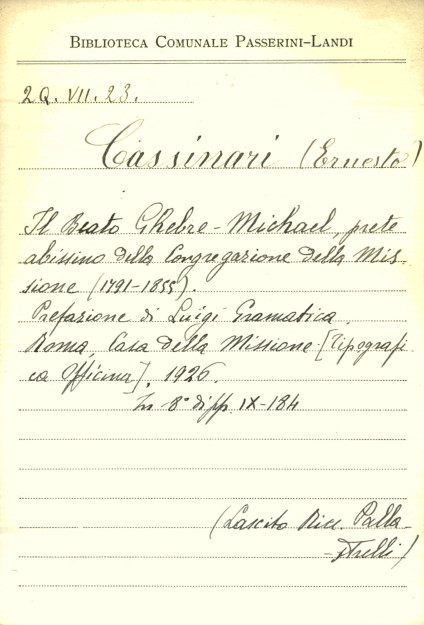 BIBLIOTECA COMUNALE PASSERINI-LANDI
2Q. VII. 23.
Cassinari (Ernesto)
Il Beato Ghebre-Michael, prete
abissino della Congregazione della Mis-
sione (1791-1855).
Prefazione di Luigi Gramatica.
Roma, Casa della Missione [Tipografi
ca Officina], 1926.
In 8° di pp. IX-184
(Lascito Ricc. Palla-
-strelli)